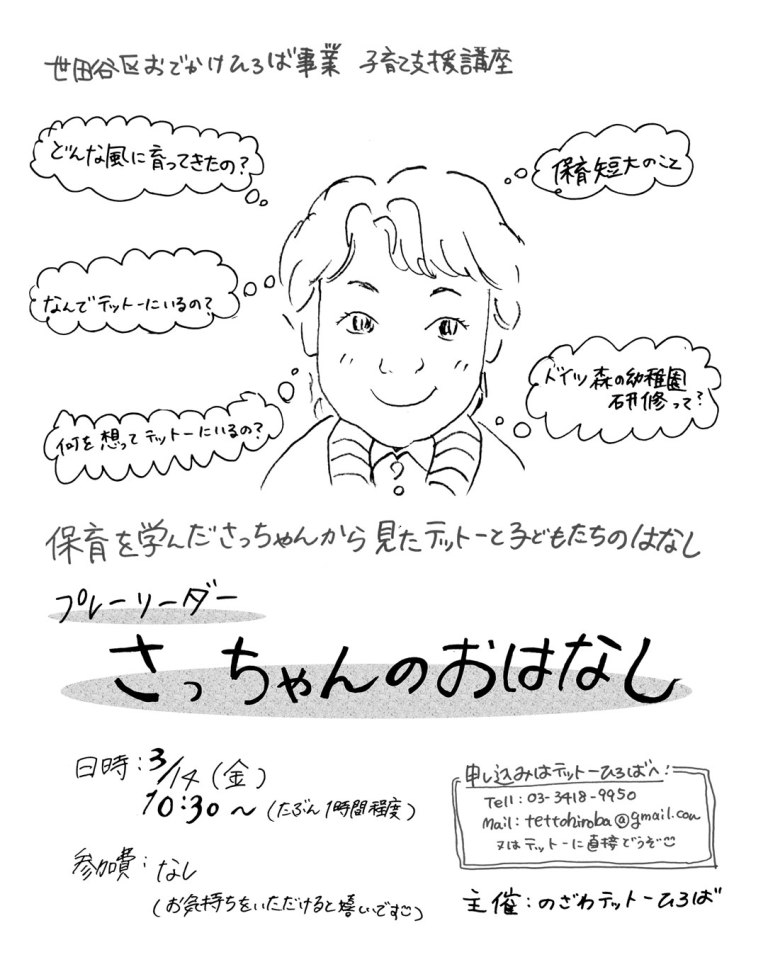 世田谷区おでかけひろば事業 子育て支援講座
どんな風に育ってきたの?
保育短大のこと
なんでテットーにいるの?
ドイツ森の幼稚園
研修って?
何を想ってテットーにいるの?
保育を学んださっちゃんから見たテットーと子どもたちのはなし
プレーリーダー
さっちゃんのおはなし
日時:3/14(金)
10:30〜(たぶん1時間程度)
参加費:なし
(お気持ちをいただけると嬉しいです)
申し込みはテットーひろばへ!
Tell:03-3418-9950
Mail:tettohiroba@gmail.com
又はテットーに直接どうぞ
主催:のざわテットーひろば